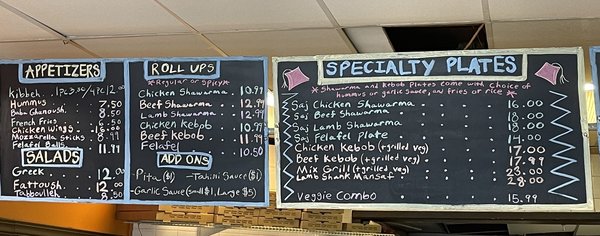 APPETIZERS
Kibbeh 1pc 3.00/4pc 12.00
Hummus 7.50
Baba Ghanoush 8.50
French Fries 6.50
Chicken Wings 15.00
Mozzarella Sticks 8.99
Felafel Balls 11.99
SALADS
Greek 12.00
Fattoush 12.00
Tabbouleh 8.50
ROLL UPS
*Regular or spicy*
Chicken Shawarma 10.99
Beef Shawarma 12.99
Lamb Shawarma 12.99
Chicken Kebob 10.99
Beef Kebob 11.99
Felafel 10.50
ADD ONS
-Pita ($1) -Tahini Sauce ($1)
-Garlic Sauce (small $1, Large $5)
SPECIALTY PLATES
*Shawarma and Kebob Plates come with choice of
hummus or garlic sauce, and fries or rice*
Saj Chicken Shawarma 16.00
Saj Beef Shawarma 18.00
Saj Lamb Shawarma 18.00
Saj Felafel Plate 14.00
Chicken Kebob (+grilled veg) 17.00
Beef Kebob (+grilled veg) 17.99
Mix Grill (+grilled veg) 23.00
Lamb Shank Mansaf 28.00
Veggie Combo 15.99